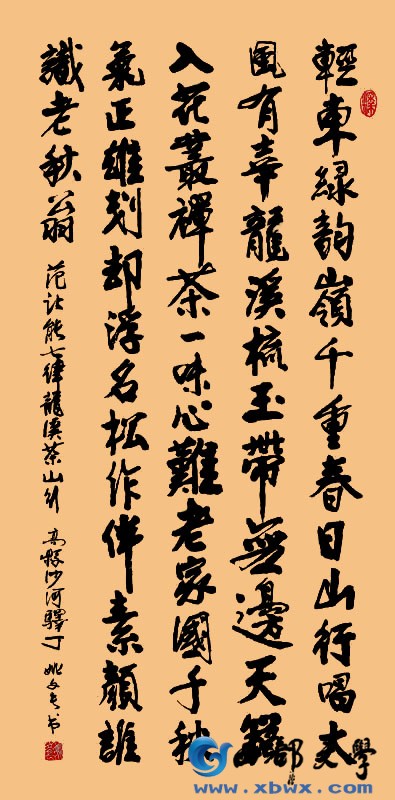 輕車綠韵嶺千重春日山行唱大
風有幸龍溪梳玉帶無邊天籟
入花叢禪茶一味心難老家國千秋
氣正雄刻却浮名松作伴素顏誰
識老秋翁
范能七律龍溪茶山行
高縣沙河驛丁 姚文书
部文學
www.xbwx.com